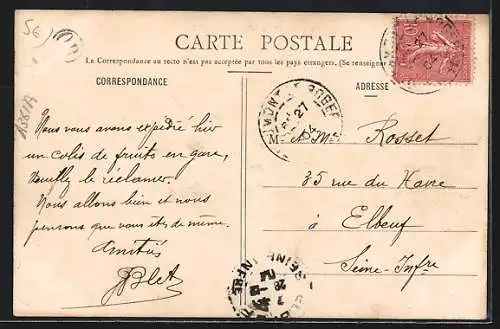 CARTE POSTALE
La Correspondance au recto n'est pas acceptée par tous les pays étrangers. (Se renseigner
CORRESPONDANCE
ADRESSE
Nous vous avons expédié hier
un colis de fruits en gare,
Veuillez le réclamer.
Nous allons bien et nous
pensons que vous êtes de même.
Amitiés
Mr Rosset
35 rue du Havre
à Elbeuf
Seine-Infre
27